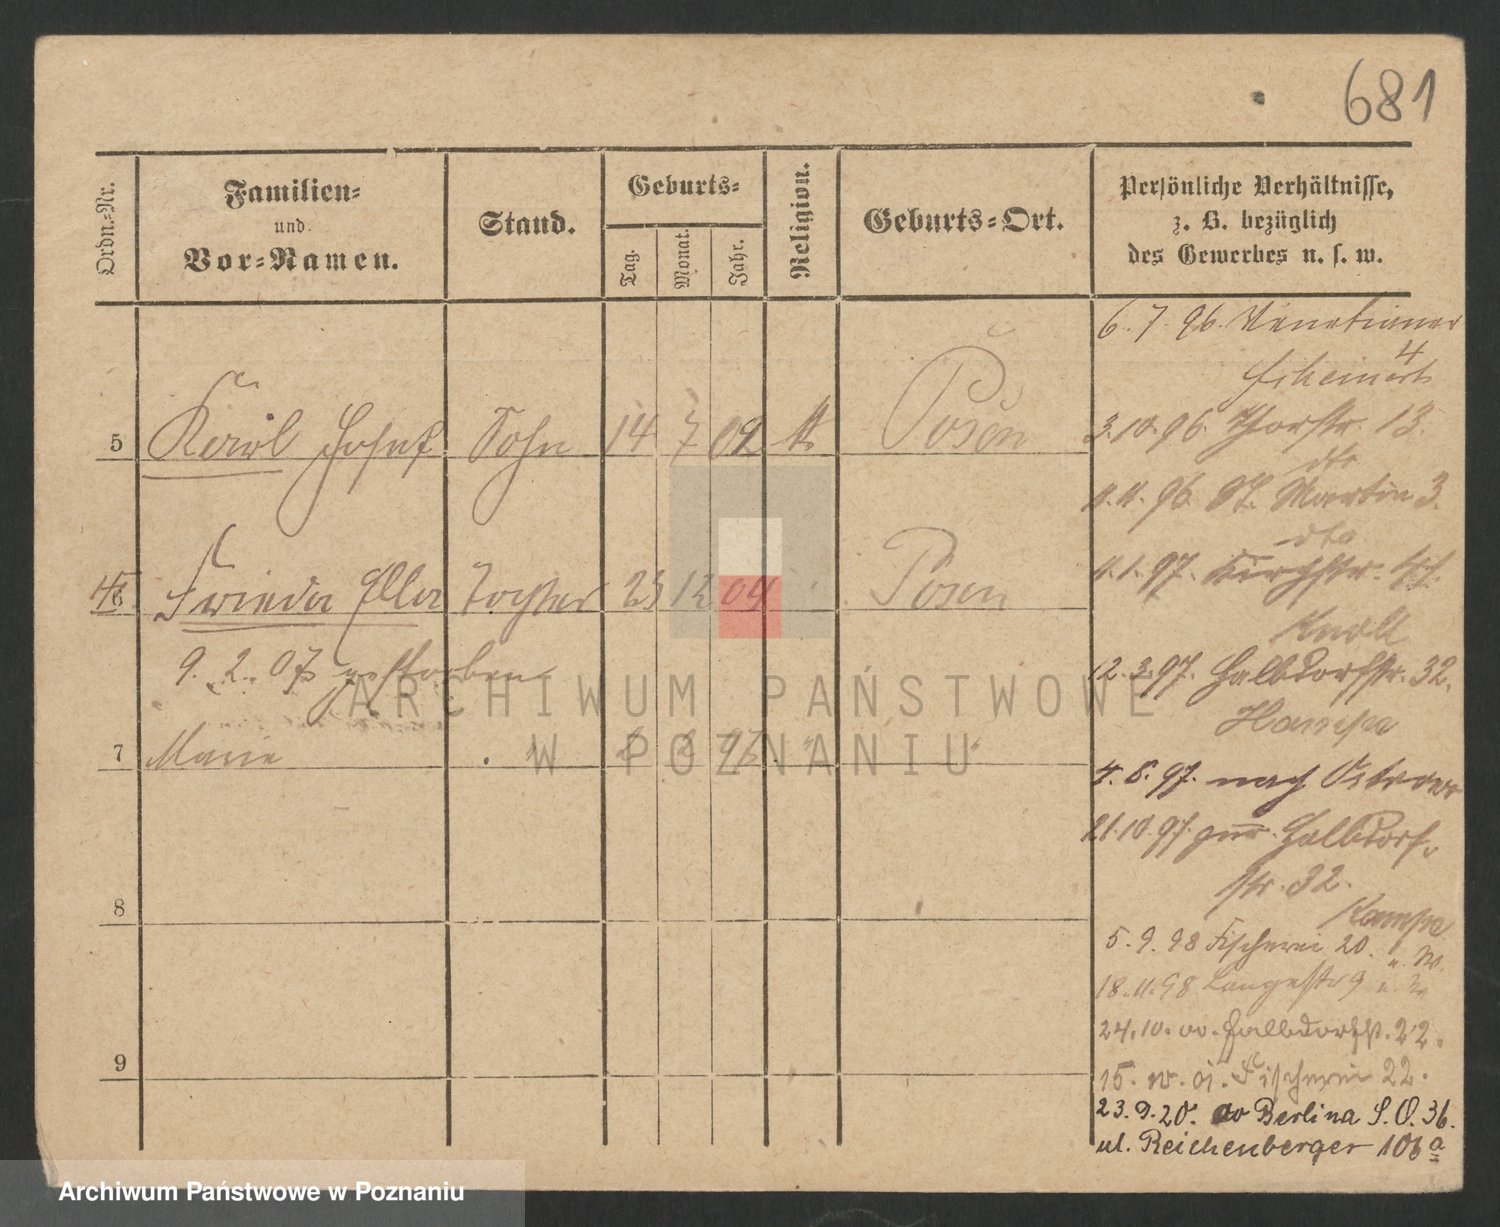 681
Ordn.-Nr.
Familien-
und
Vor-Namen.
Stand.
Geburts-
Tag.
Monat.
Jahr.
Religion.
Geburts-Ort.
Persönliche Verhältnisse,
z. B. bezüglich
des Gewerbes u. s. w.
6. 7. 96. Venetianer
4
3. 10. 96. Thorstr. 13.
dto
5 Karl Josef Sohn 14 7 02 k Posen
11. 11. 96. St. Martin 3.
dto
11. 1. 97. Kirchstr.
6 Frieda Ella Tochter 23 12 04 Posen
12. 3. 97. Halbdorfstr. 32.
9. 2. 07 gestorben
7 Marie
4. 8. 97. nach
21. 10. 97. zur. Halbdorf-
str. 32.
8
5. 9. 98 Fischerei 20. " W.
18. 11. 98 Langestr 9
24. 10. 00. Halbdorfst. 22.
9
15. 01. Fischerei 22.
23. 9. 20. do Berlina S. O. 36.
ul. Reichenberger 106a
ARCHIWUM PAŃSTWOWE
W POZNANIU
Archiwum Państwowe w Poznaniu